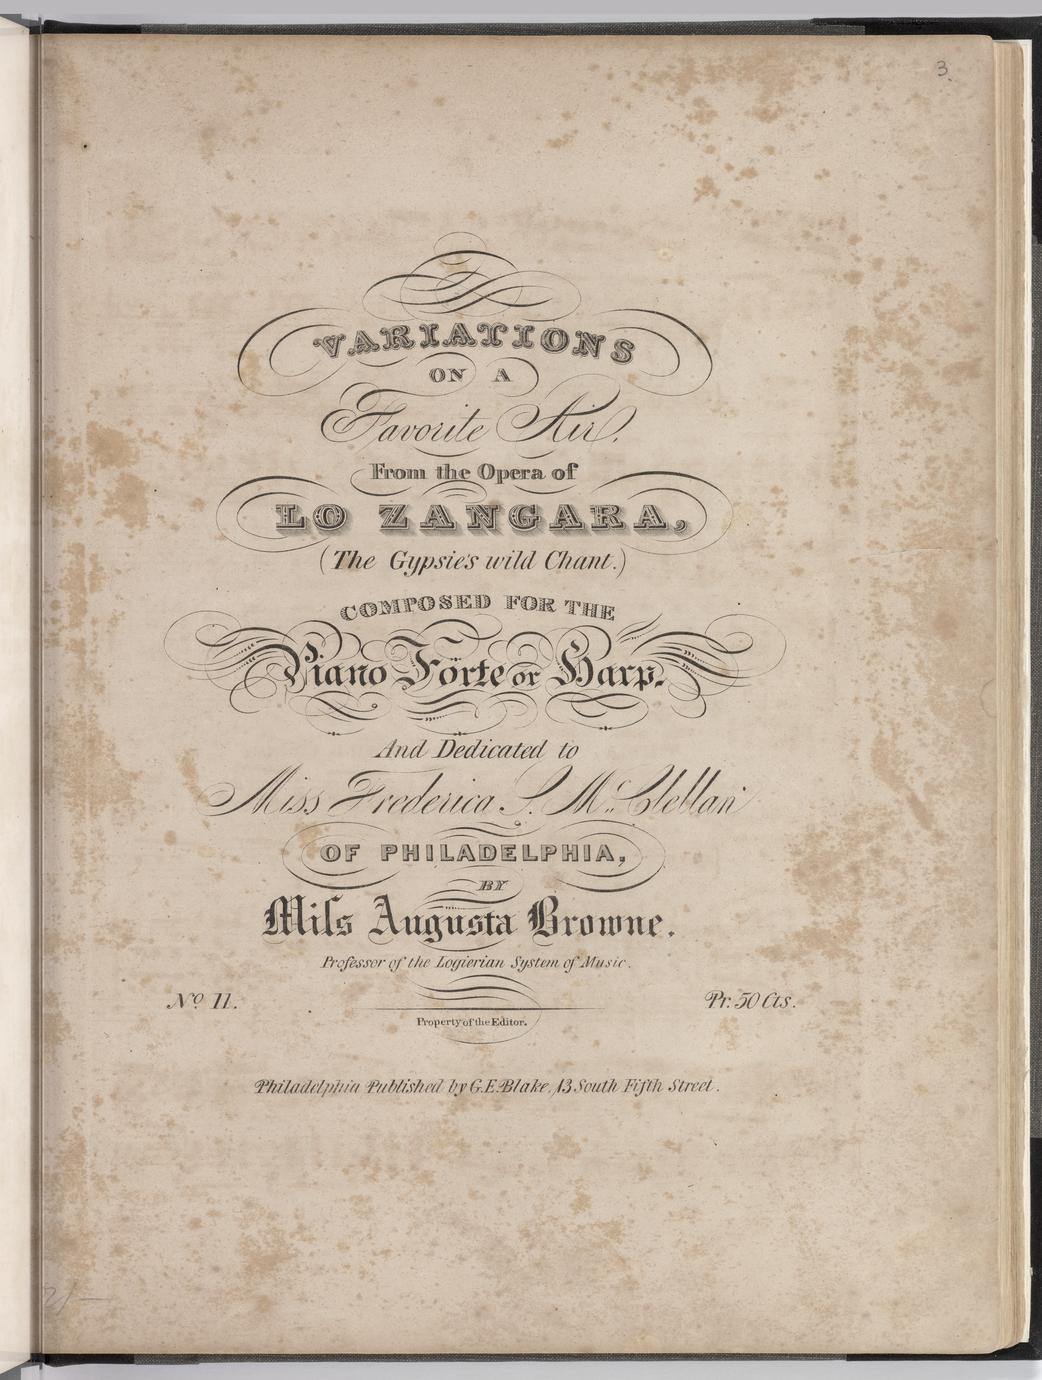 3.
VARIATIONS
ON A
Favorite Air,
From the Opera of
LO ZANGARA,
(The Gypsie's wild Chant.)
COMPOSED FOR THE
Piano Forte or Harp.
And Dedicated to
Miss Frederica S. McClellan
OF PHILADELPHIA,
BY
Miſs Augusta Browne.
Professor of the Logierian System of Music.
No. 11. Pr. 50 Cts.
Property of the Editor.
Philadelphia Published by G. E. Blake, 13 South Fifth Street.